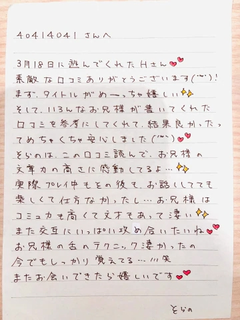 40414041 さんへ
3月18日に遊んでくれたHさん💕
素敵な口コミありがとうございます(¨̮)!
まず、タイトルがめーっちゃ嬉しい✨
そして、いろんなお兄様が書いてくれた
口コミを参考にしてくれて、結果良かったっ
てめちゃくちゃ安心しました(¨̮)💕
そらのは、この口コミ読んで、お兄様の
文章力の高さに感動してるよ…✨
実際プレイ中もその後も、お話ししてても
楽しくて仕方なかったし…お兄様は
コミュ力も高くて文才もあって凄い✨
また交互にいっぱい攻め合いたいね💕
お兄様の舌のテクニック凄かったの
今でもしっかり覚えてる…///笑
またお会いできたら嬉しいです💕
そらの